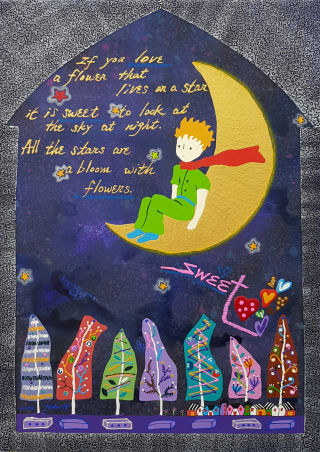 If you love
a flower that
lives on a star
it is sweet to look at
the sky at night.
All the stars are
a bloom with
flowers.
SWEET